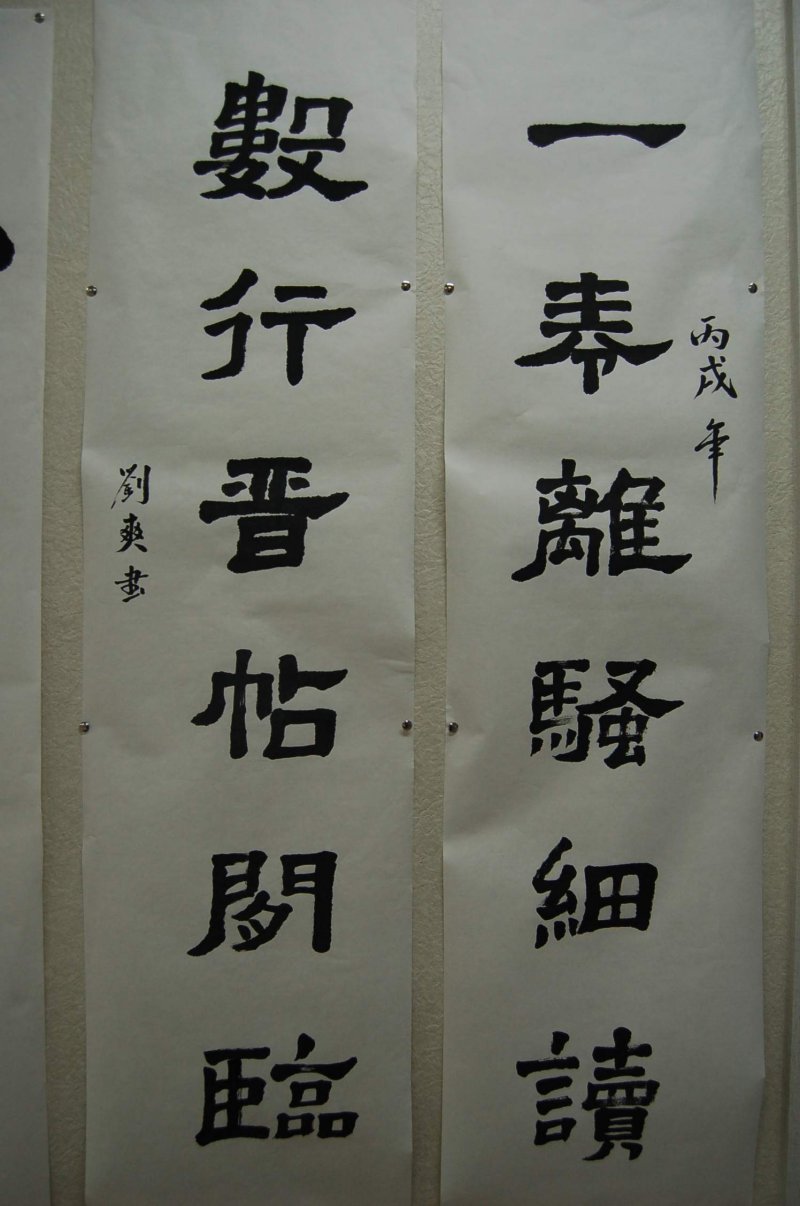 丙戌年
一卷離騷細讀
數行晉帖閒臨
劉爽書